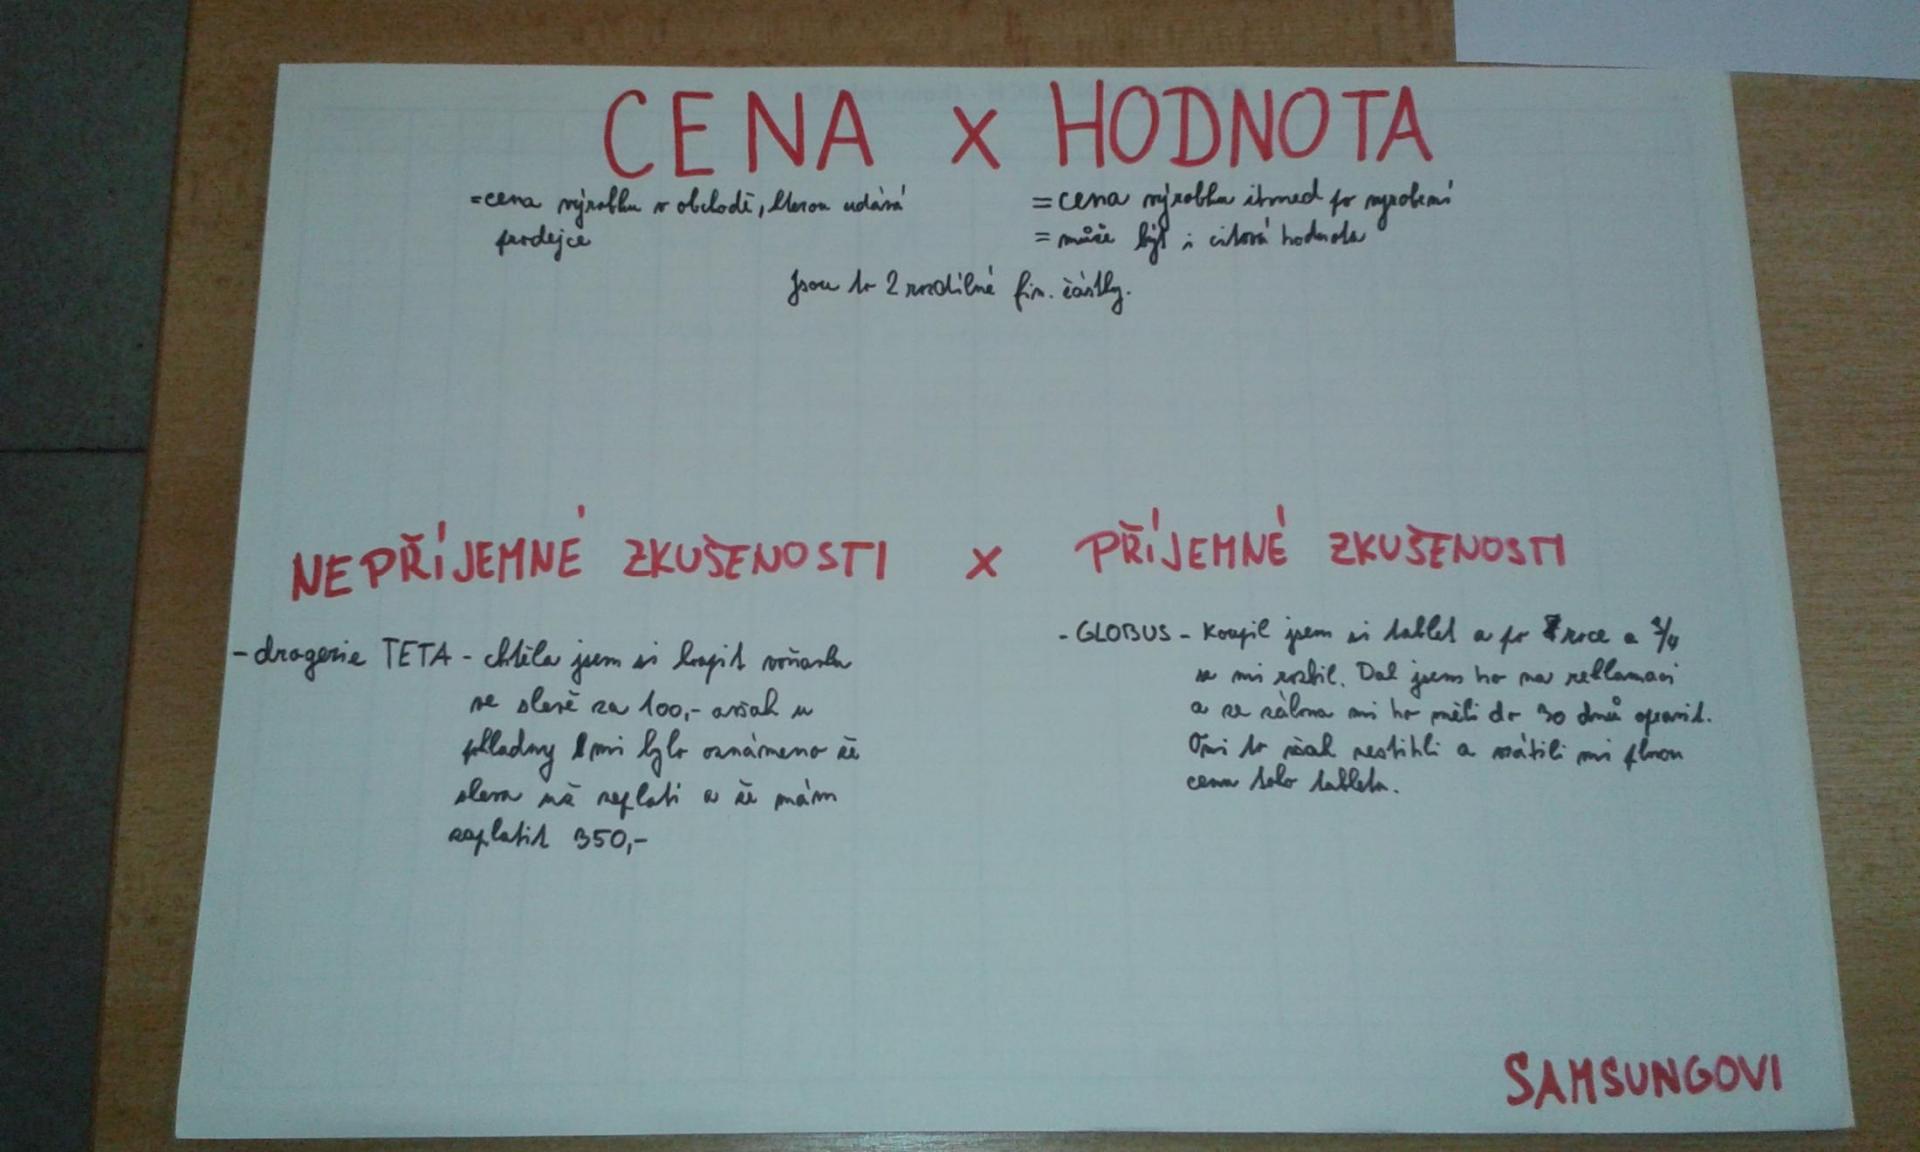 CENA x HODNOTA
=cena výrobku v obchodě, kterou udává
prodejce
= cena výrobku ihned po vyrobení
= může být i citová hodnota
Jsou to 2 rozdílné fin. částky.
NEPŘÍJEMNÉ ZKUŠENOSTI x PŘÍJEMNÉ ZKUŠENOSTI
- drogerie TETA - chtěla jsem si koupit voňavku
ve slevě za 100,- avšak u
pokladny mi bylo oznámeno že
sleva už neplatí a že mám
zaplatit 350,-
- GLOBUS - Koupil jsem si tablet a po roce a 3/4
se mi rozbil. Dal jsem ho na reklamaci
a ze zákona mi ho měli do 30 dnů opravit.
Oni to však nestihli a vrátili mi plnou
cenu toho tabletu.
SAMSUNGOVI